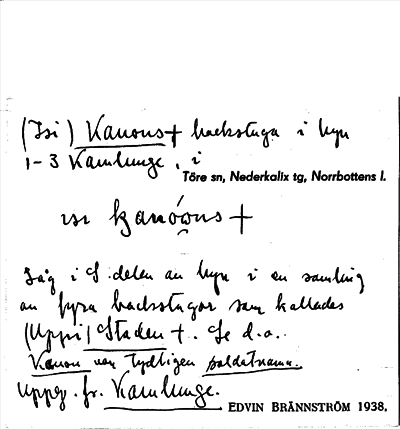 (Isi) Kanons † backstuga i byn
1-3 Kamlunge, i
Töre sn, Nederkalix tg, Norrbottens l.
isi kanóons †
Låg i S delen av byn i en samling
av fyra backstugor som kallades
(Uppi) Staden †. Se d.o.
Kanon var tydligen soldatnamn.
Uppg. fr. Kamlunge.
EDVIN BRÄNNSTRÖM 1938.